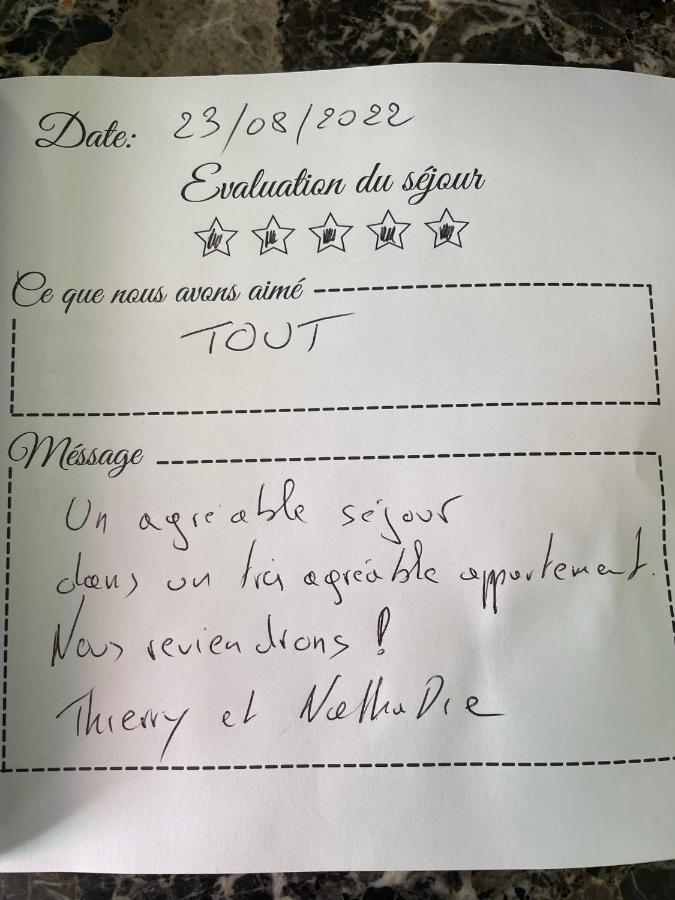 Date: 23/08/2022
Evaluation du séjour
Ce que nous avons aimé
TOUT
Méssage
Un agréable séjour
dans un très agréable appartement.
Nous reviendrons !
Thierry et